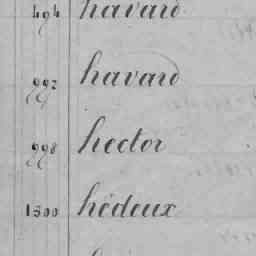 494 havard
992 havard
998 hector
1300 hédeux